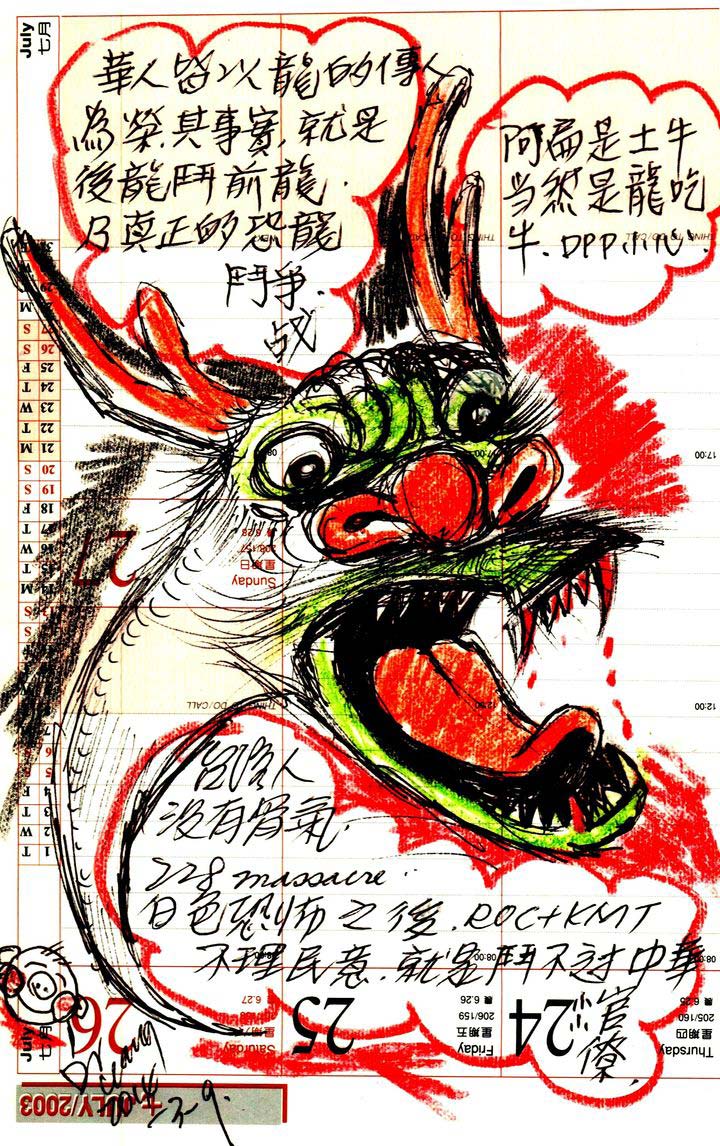 華人皆以龍的傳人
為榮.其事實.就是
後龍鬥前龍.
乃真正的恐龍
鬥爭.
战
阿扁是土牛
当然是龍吃
牛.DPPiiiN'.
台灣人
没有骨氣.
228 massacre..
白色恐怖之後.ROC+KMT
不理民意.就是鬥不过中華
小官
僚.
Dr
2014
-3-9.
July
七月
27
星期日
Sunday
208/157
6.28
THINGS TO DO/CALL
THINGS TO DO/CALL
17:00
17:00
12:00
08:00
08:00
26
Saturday
6.27
25
Friday
星期五
206/159
6.26
24
Thursday
星期四
205/160
6.25
July
七月
JULY/2003
31
M
S
S
27
26
25
24
23
22
21
20
19
18
17
F
T
W
T
M
S
S
F
T
W
T
M
6
5
4
3
2
1